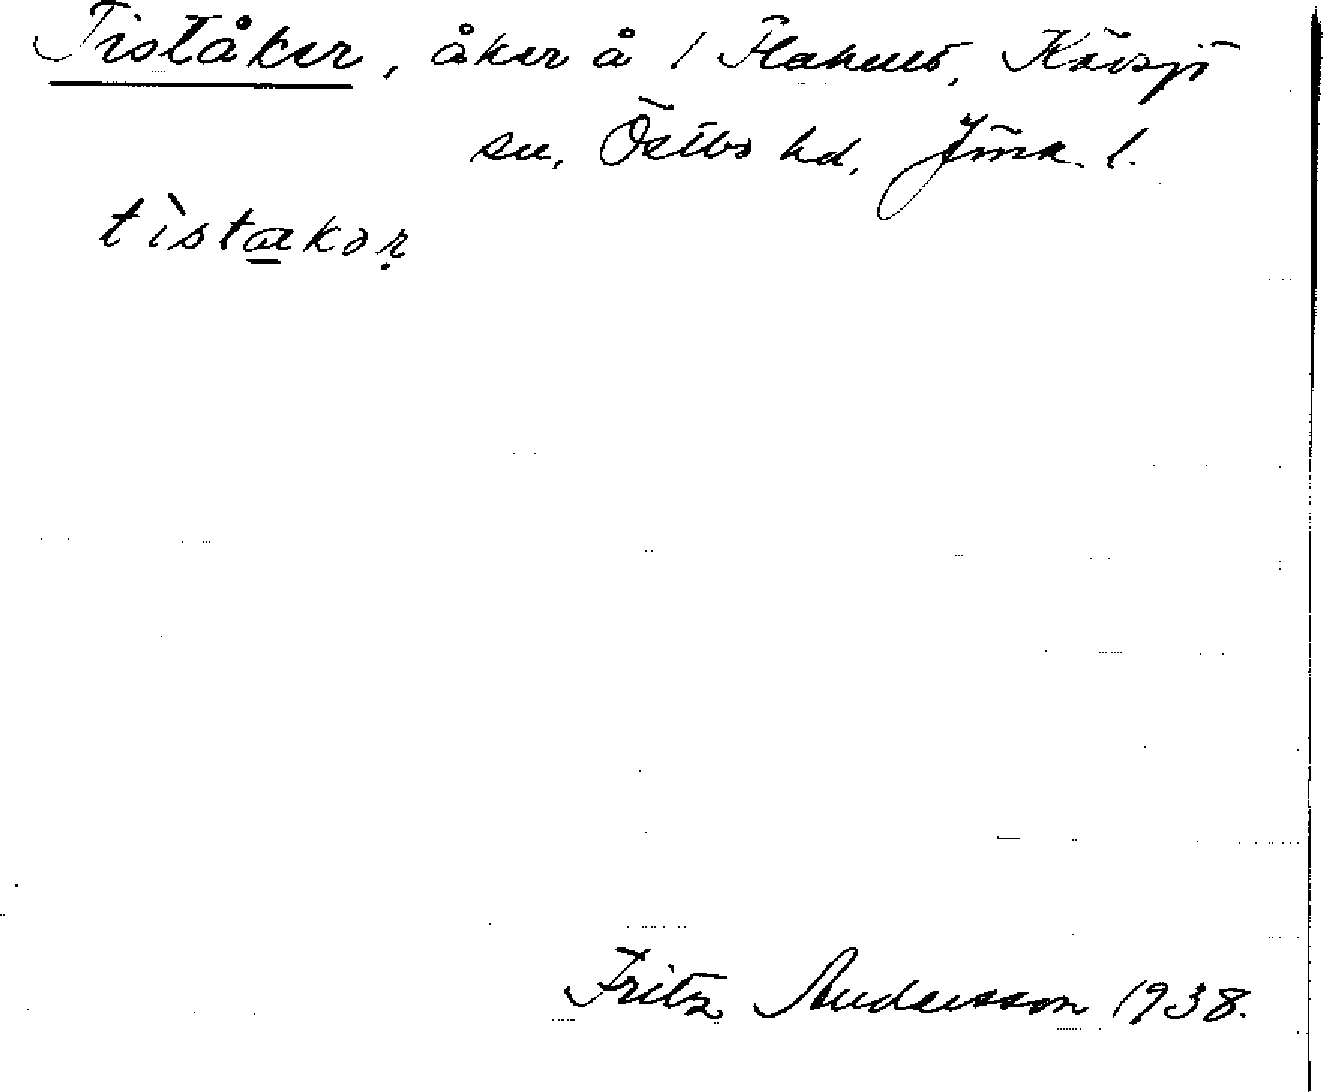 Tiståker, åker å 1 Flahult, Kävsjö
sn, Östbo hd, Jönk. l.
tìstakər
Fritz Andersson 1938.